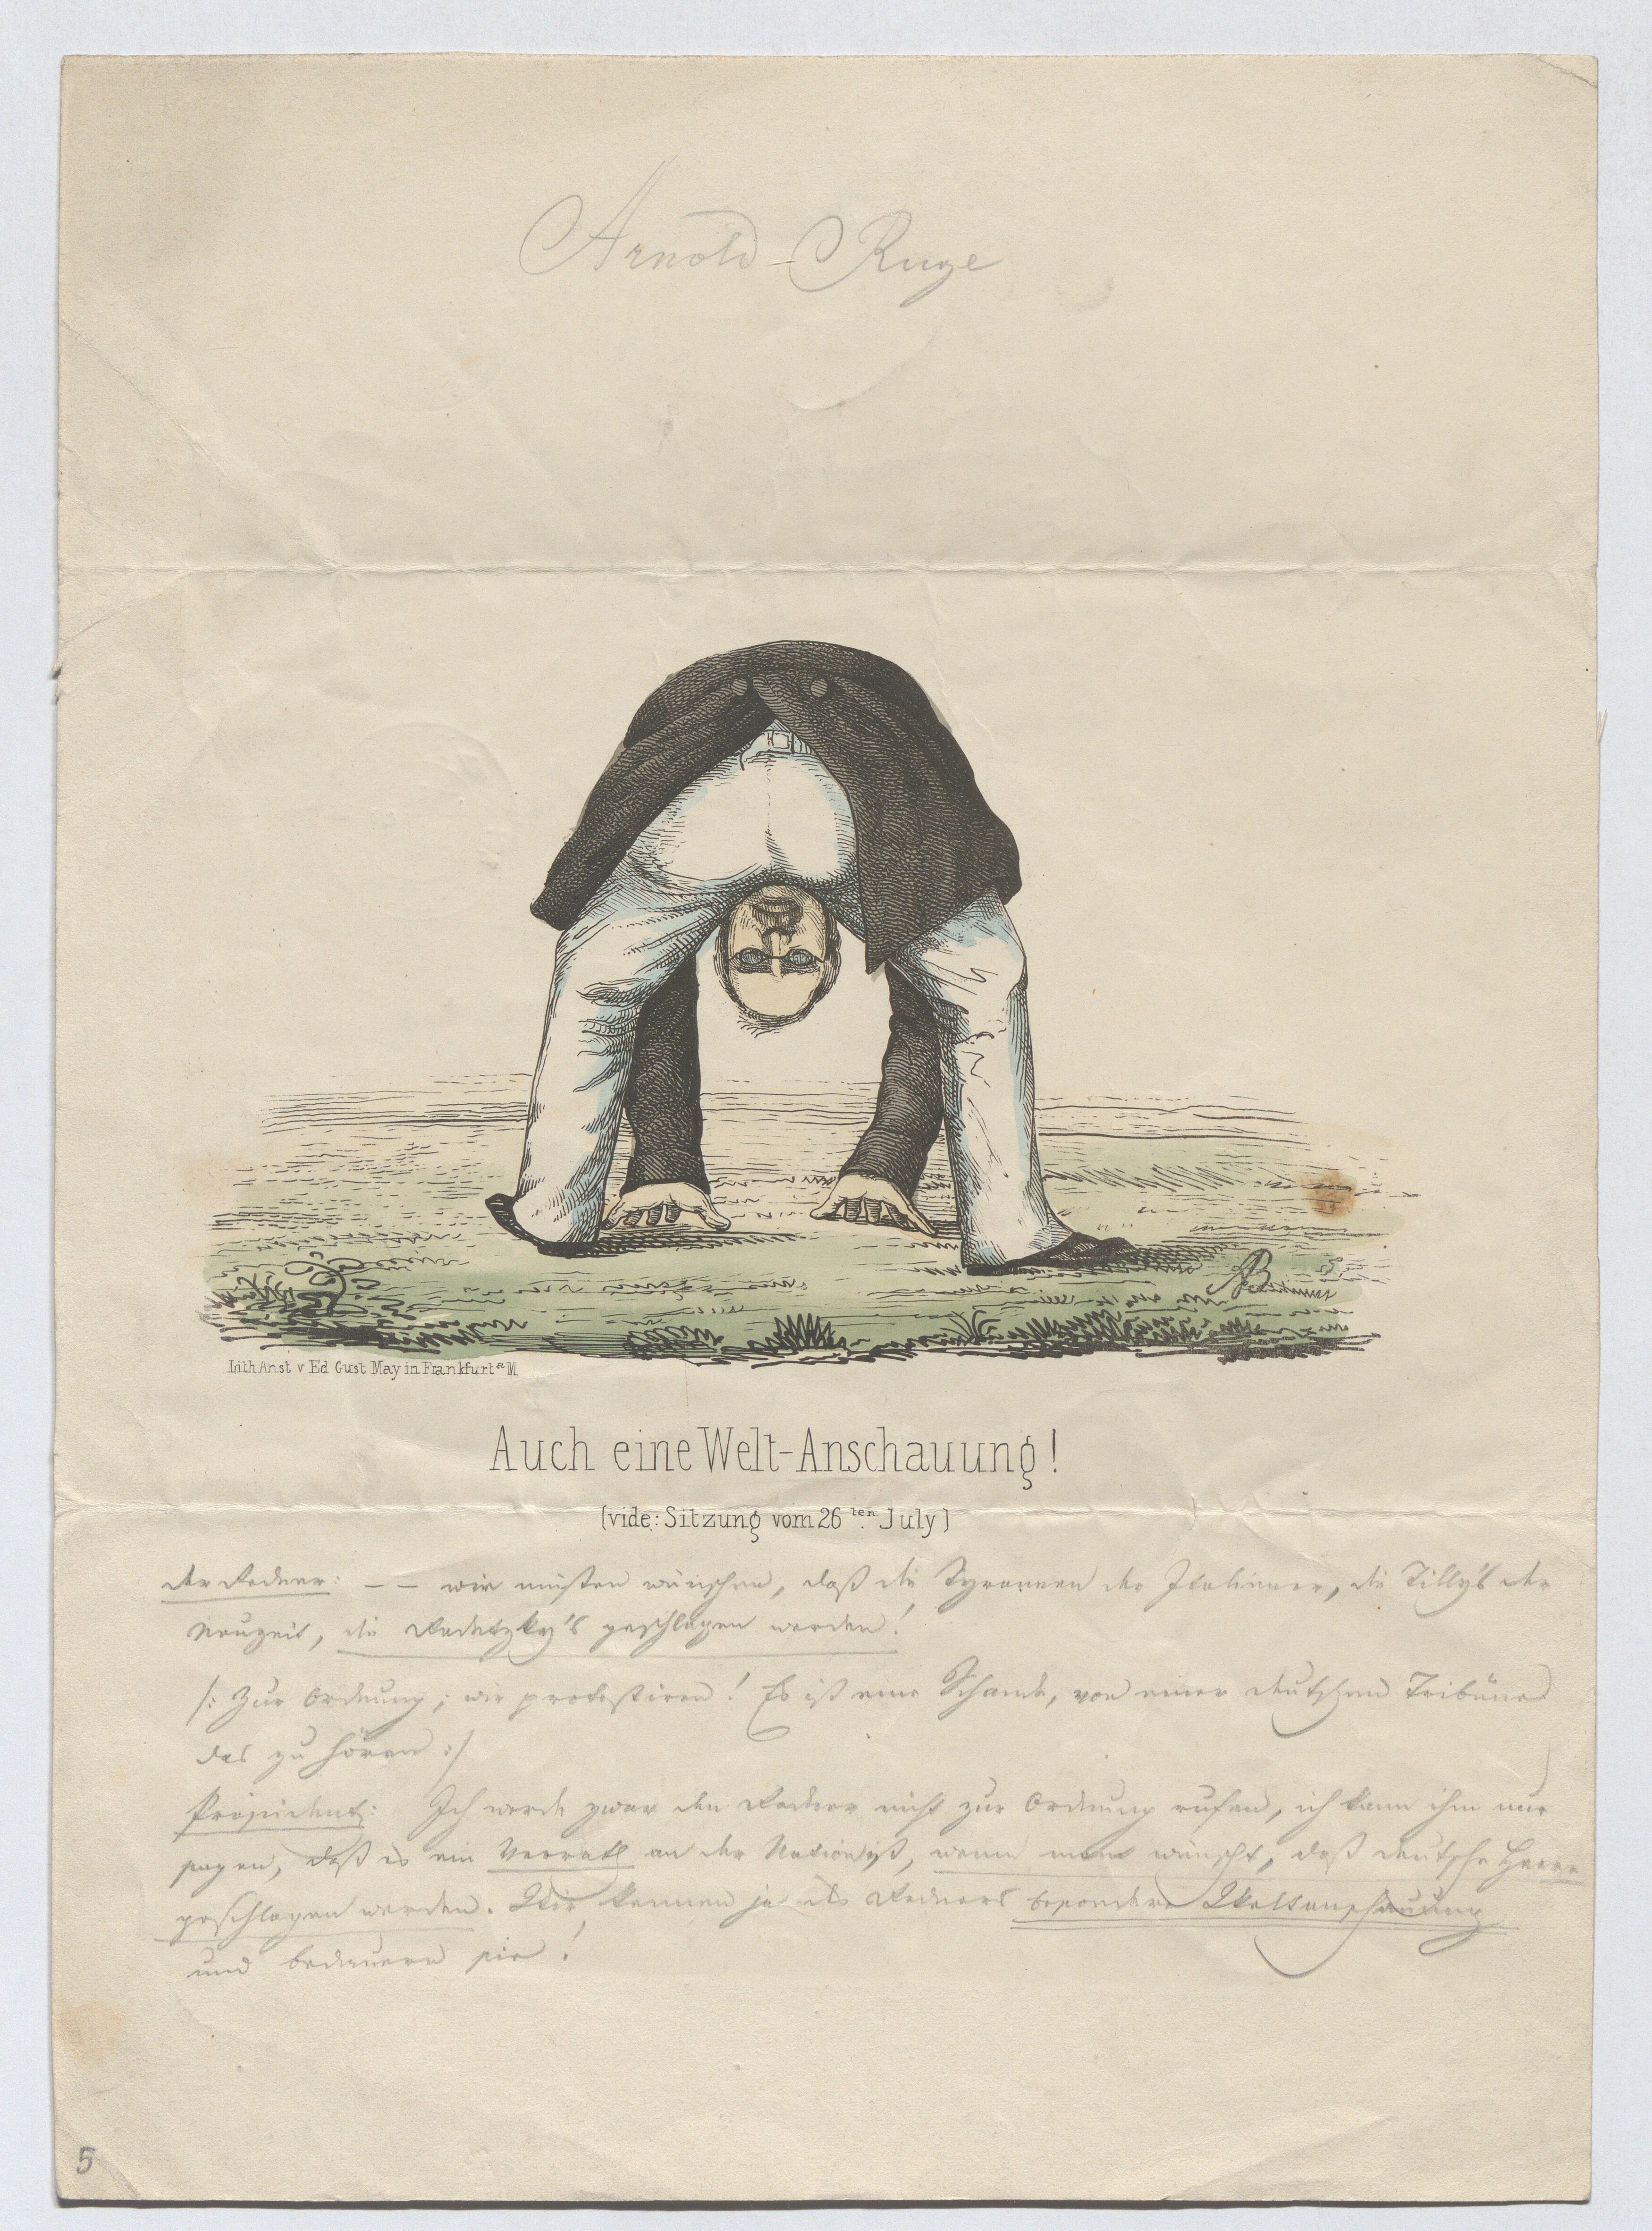 Arnold Ruge
Lith Anst v Ed Gust May in Frankfurt a M
Auch eine Welt-Anschauung!
(vide: Sitzung vom 26ten July)
der Redner: – – wir müßten wünschen, daß die Tyrannen der Italiener, die Tilly's der
Neuzeit, die Radetzky's geschlagen werden!
/: Zur Ordnung; wir protestiren! Es ist eine Schande, von einer deutschen Tribüne
das zu hören :/
Präsident: Ich werde zwar den Redner nicht zur Ordnung rufen, ich kann ihm nur
sagen, daß es ein Verrath an der Nation ist, wenn man wünscht, daß deutsche Heere
geschlagen werden. Wir kennen ja des Redners besondere Weltanschauung
und bedauern sie!
5